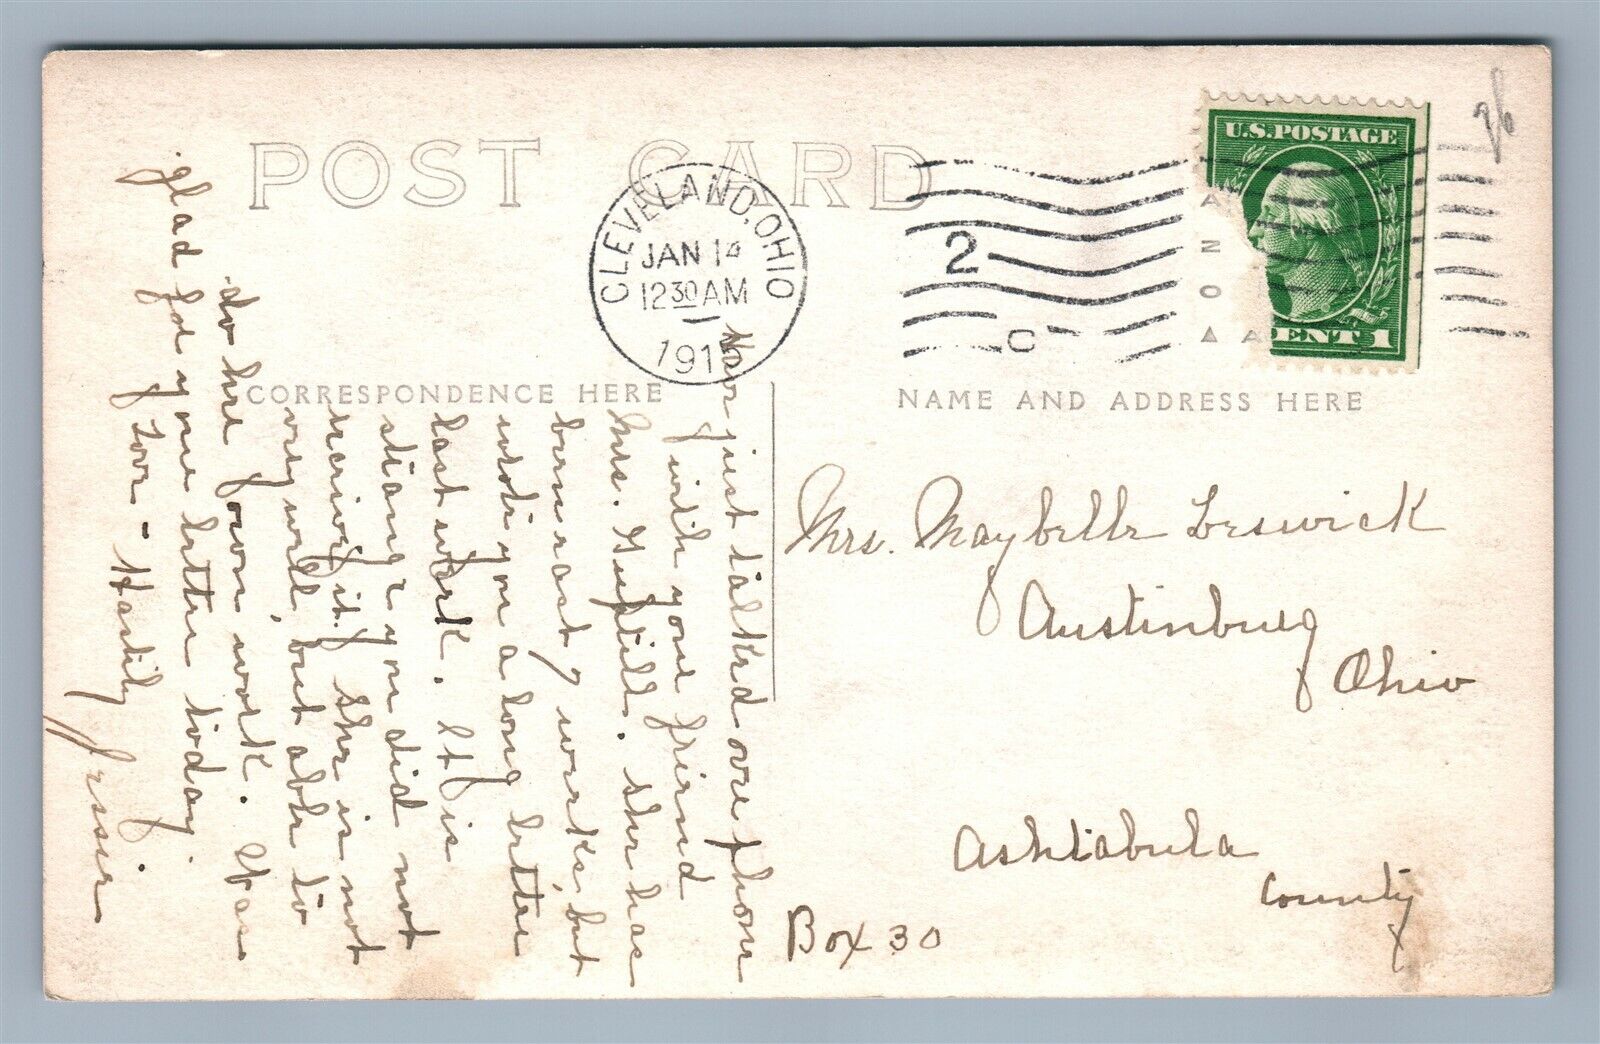 POST CARD
CLEVELAND, OHIO
JAN 14
12 30 AM
191
2
C
U.S. POSTAGE
CENT 1
CORRESPONDENCE HERE
NAME AND ADDRESS HERE
Have just talked over phone
with your friend
Mrs. Guptill. She has
been east 7 weeks, but
wrote you a long letter
last week. It is
strange you did not
receive it. She is not
very well, but able to
do her own work. Was
glad for your letter today.
Love - Hastily
Jessie
Mrs. Maybelle Leswick
Austinburg
Ohio
Ashtabula
County
Box 30